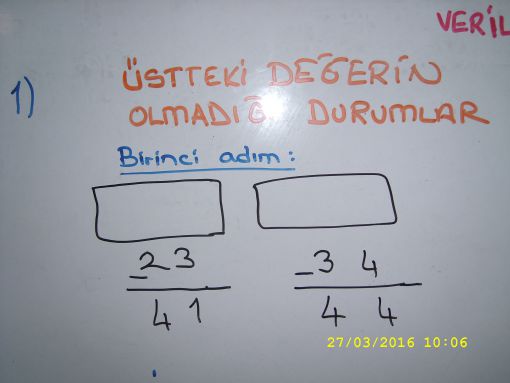 VERİL
1)
ÜSTTEKİ DEĞERİN
OLMADIĞI DURUMLAR
Birinci adım:
-23
41
-34
44
27/03/2016 10:06